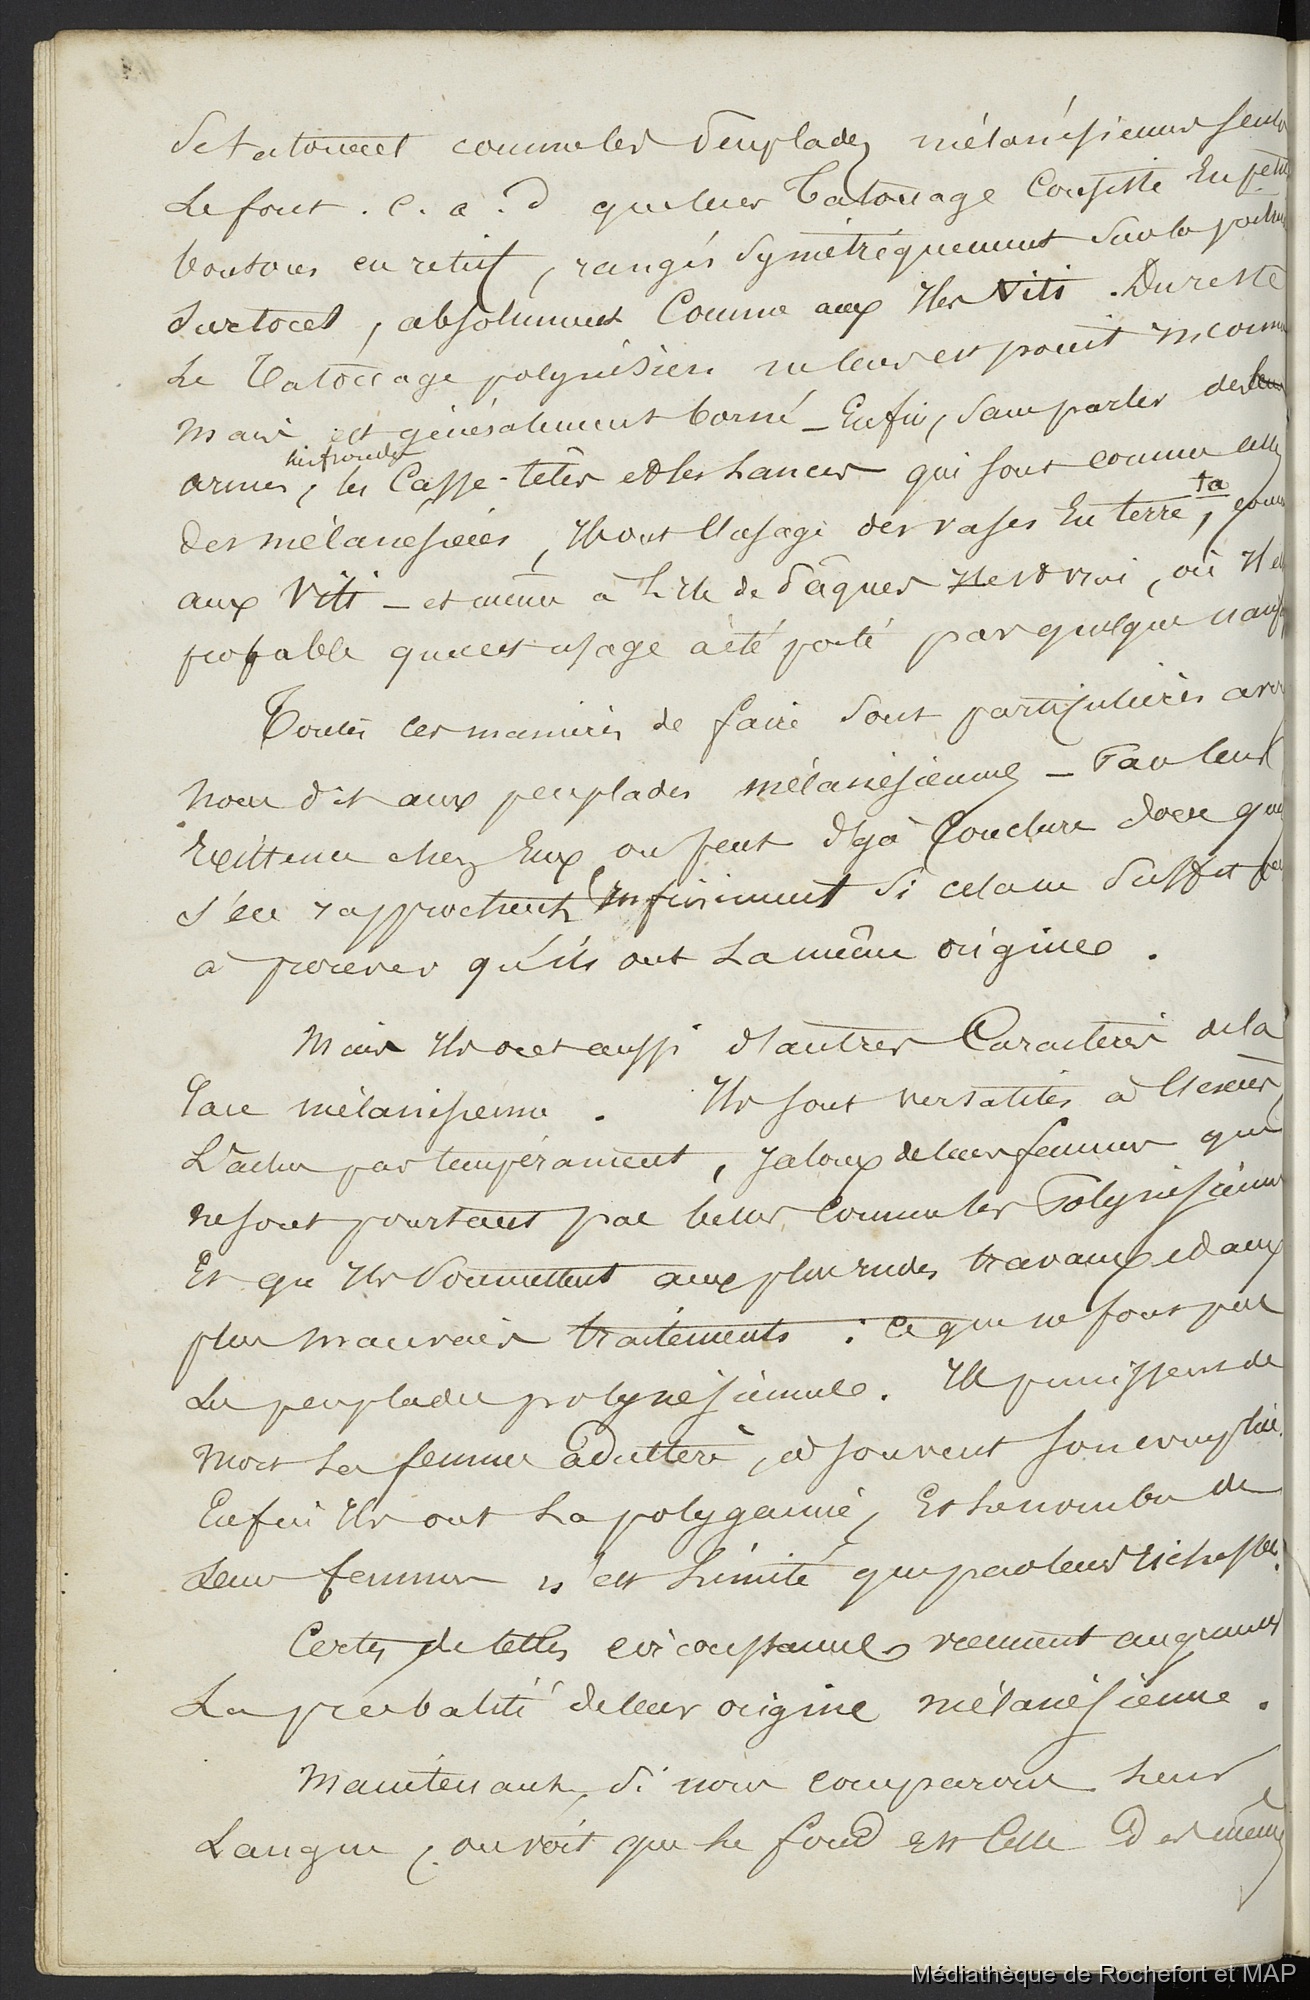 se tatouent comme les peuplades mélanésiennes seules
le font. c. a. d que leur Tatouage Consiste En petits
boutons en relief, rangés Symétriquement Sur la poitrine
Surtout, absolument Comme aux Iles Viti. Du reste
Le Tatouage polynésien ne leur est point inconnu
Mais est généralement borné _ Enfin, Sans parler de leurs
les frondes
armes, les Casse-têtes et les Lances qui sont comme celles
des mélanésiens, Ils ont l'usage des vases En terre, comme
ta
aux Viti _ et même à L'Ile de Pâques Il est vrai, où Il est
probable que cet usage a été porté par quelque
Toutes ces manières de faire sont particulières avons
nous dit aux peuplades mélanésiennes _ Par leur
Existence chez Eux on peut déjà Conclure donc que
s'en rapprochent Infiniment Si cela ne Suffit pas
à prouver qu'ils ont La même origine.
Mais Ils ont aussi d'autres Caractères de la
race mélanésienne. Ils sont versatiles à l'excès,
Lâches par tempérament, Jaloux de leurs femmes qui
ne sont pourtant pas belles comme les Polynésiennes
Et qu'Ils Soumettent aux plus rudes travaux et aux
plus mauvais traitements : Ce que ne font pas
Les peuplades polynésiennes. Ils punissent de
Mort La femme adultère, et souvent son complice.
Enfin Ils ont La polygamie, Et Le nombre de
Leurs femmes n'est Limité que par leurs richesses.
Certes de telles circonstances viennent augmenter
La probalité de leur origine mélanésienne.
Maintenant, Si nous comparons Leur
Langue, on voit que Le fond Est Celle des mêmes
Médiathèque de Rochefort et MAP